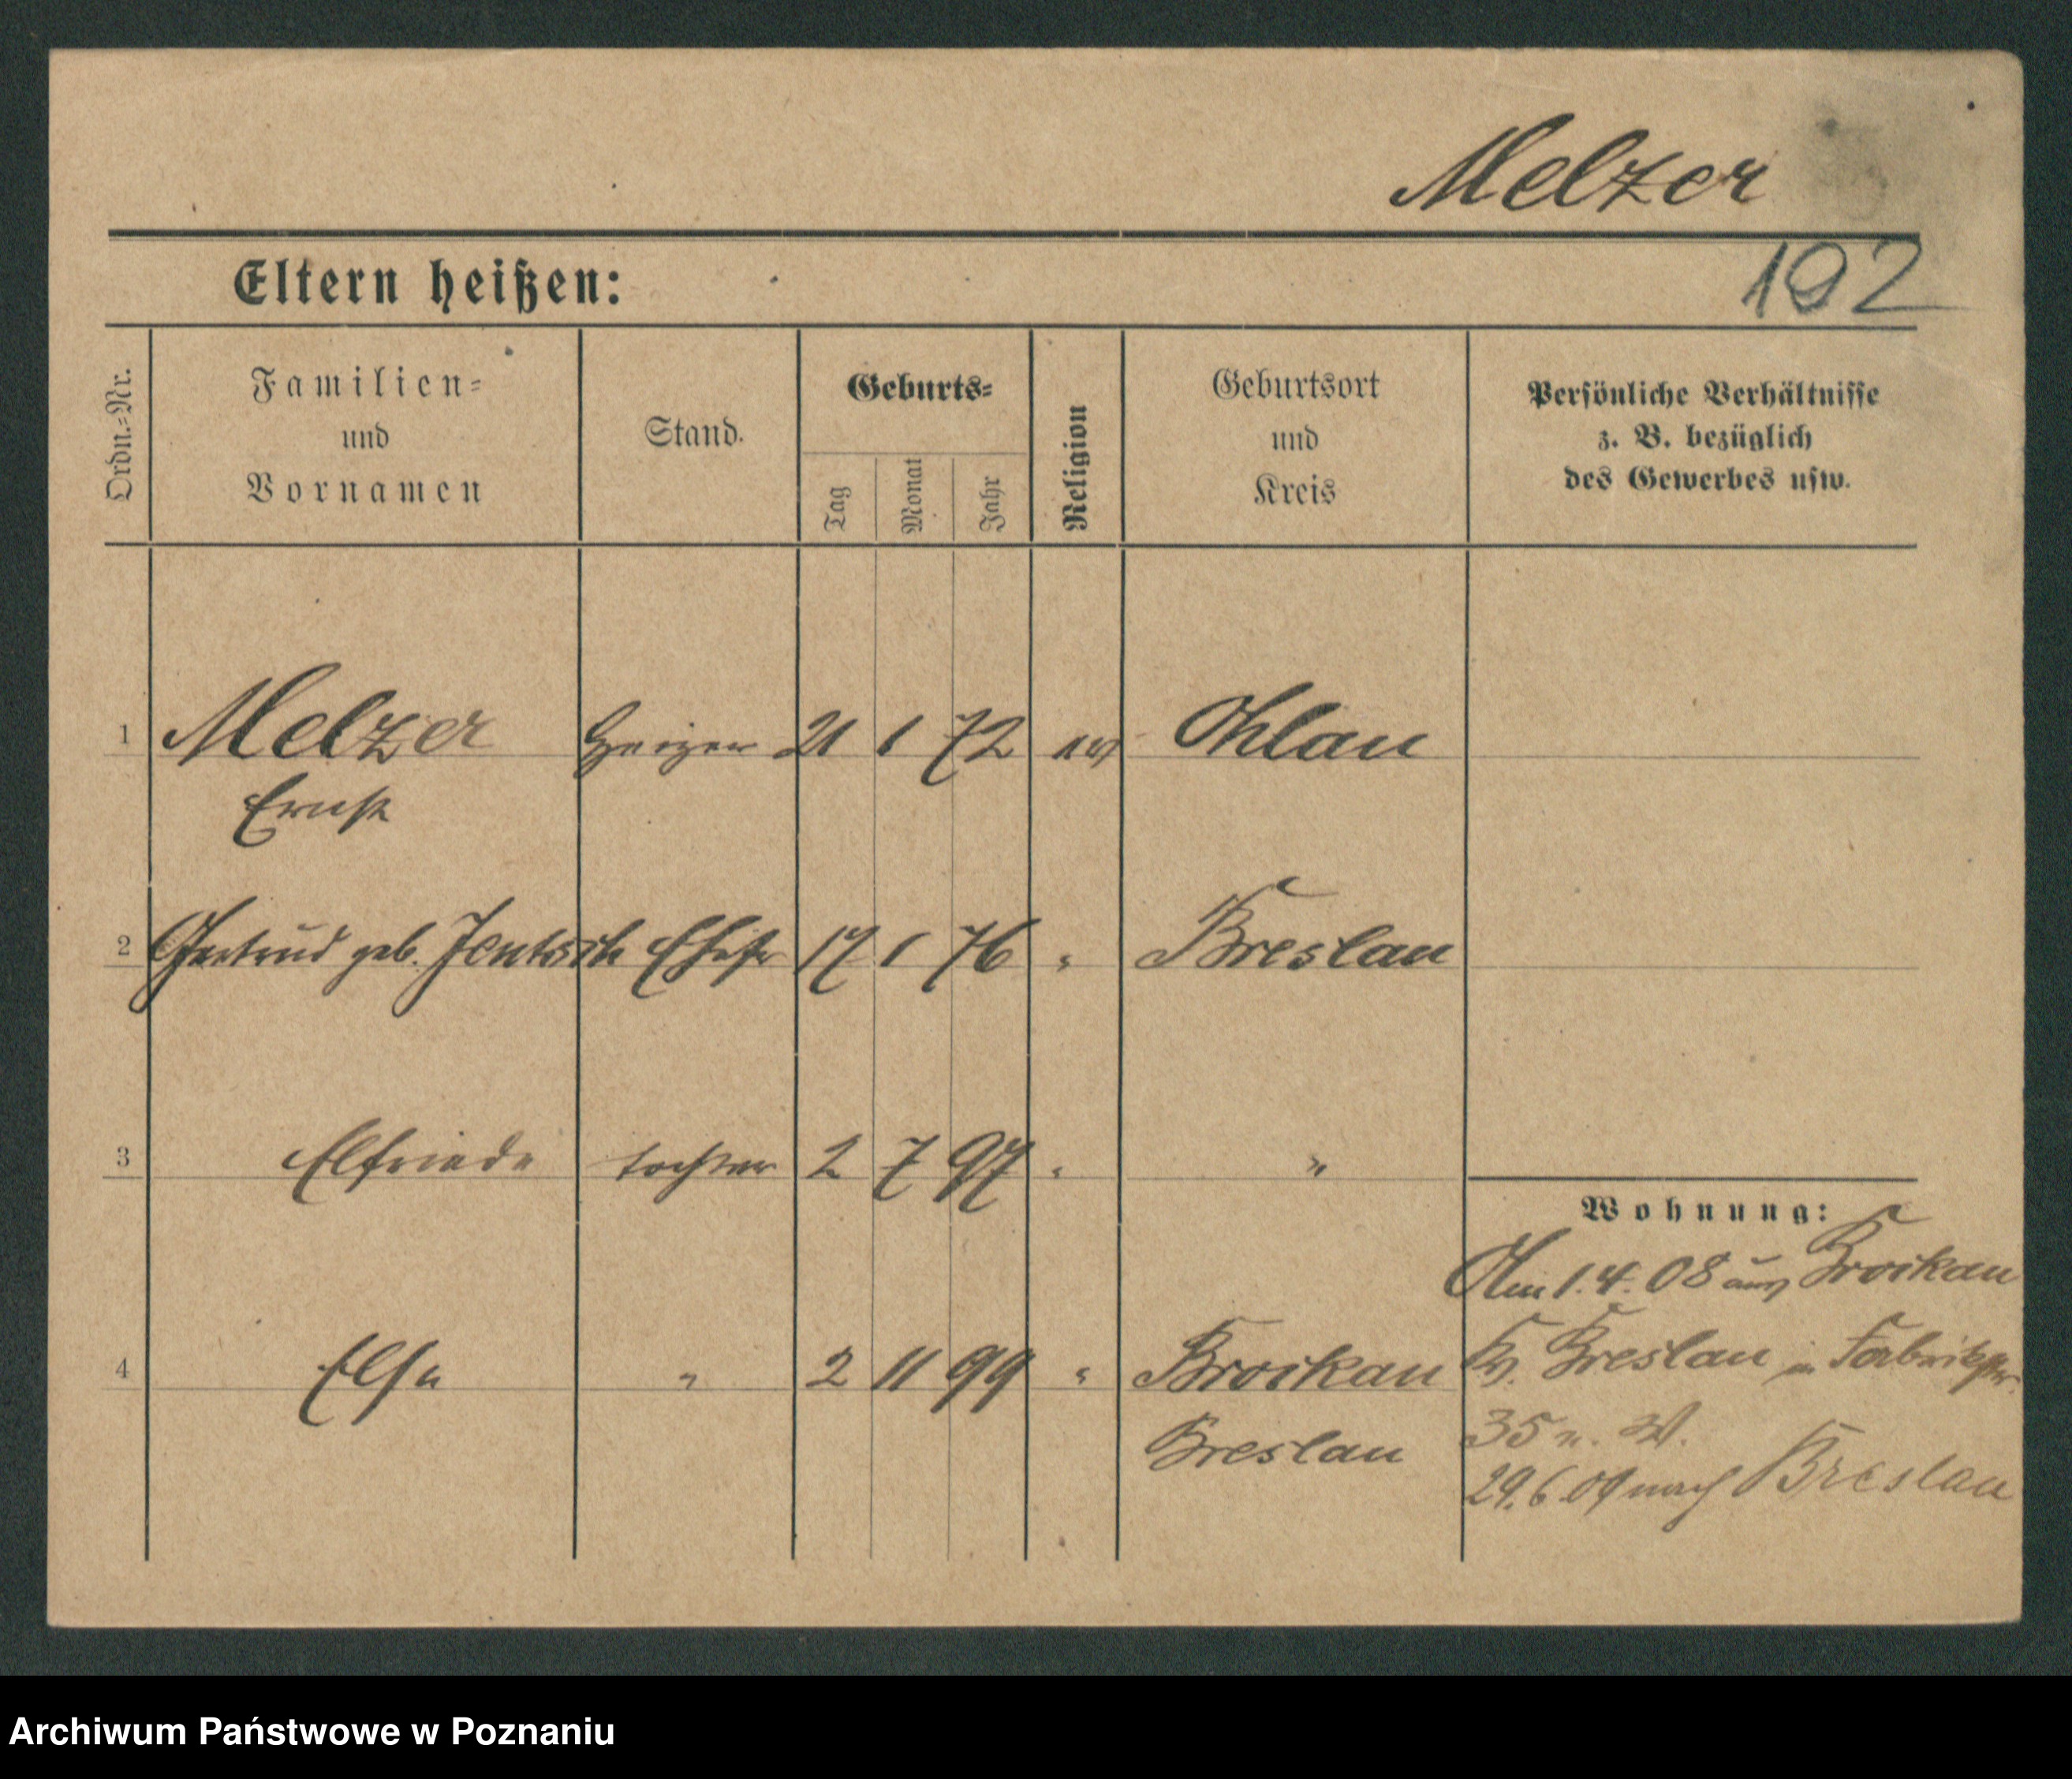 Melzer
192
Eltern heißen:
Ordn.=Nr.
Familien=
und
Vornamen
Stand.
Geburts=
Tag
Monat
Jahr
Religion
Geburtsort
und
Kreis
Persönliche Verhältnisse
z. B. bezüglich
des Gewerbes usw.
1 Melzer Heizer 21 1 72 ev Ohlau
Ernst
2 Gertrud geb. Jentsch Ehefr 17 1 76 " Breslau
3 Elfriede Tochter 2 7 97 " "
Wohnung:
Am 1.4.08 aus Brockau
Kr. Breslau in Fabrikstr.
4 Else " 2 11 99 " Brockau
Breslau
35 n. W.
29.6.09 nach Breslau
Archiwum Państwowe w Poznaniu